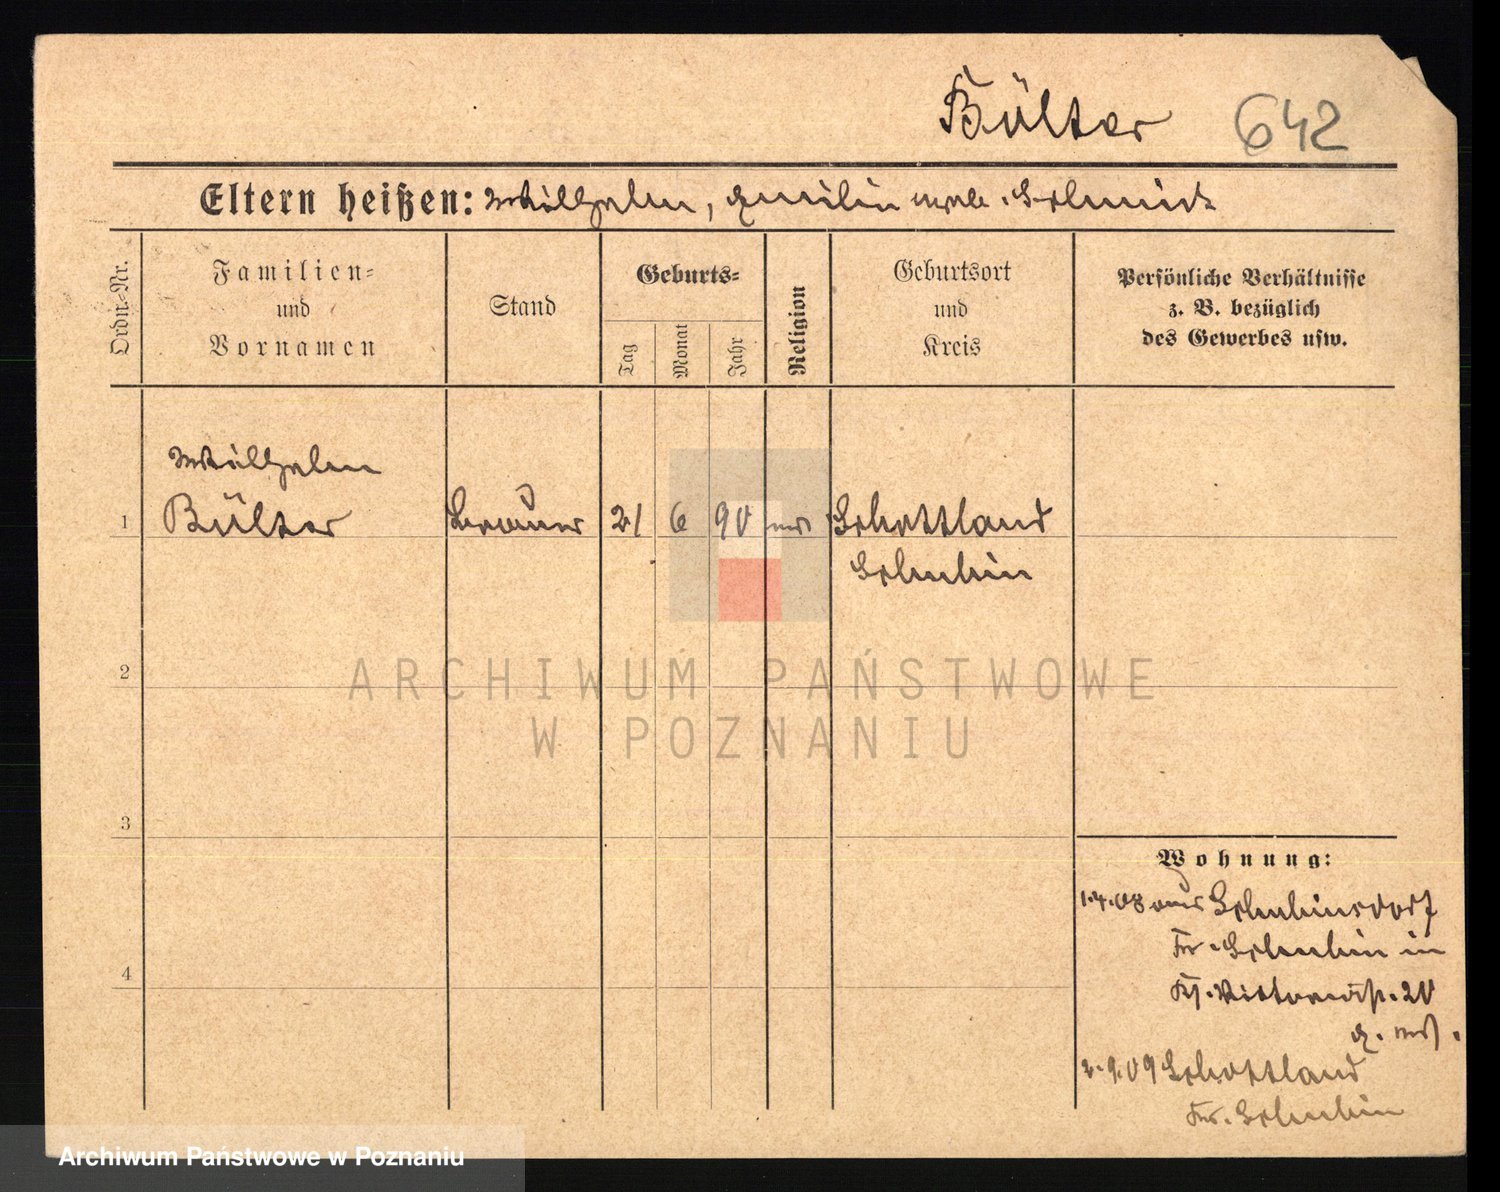 Bülter 642
Eltern heißen: Wilhelm, Emilie geb. Schmidt
Ordn.-Nr.
Familien-
und
Vornamen
Stand
Geburts-
Tag
Monat
Jahr
Religion
Geburtsort
und
Kreis
Persönliche Verhältnisse
z. B. bezüglich
des Gewerbes usw.
Wilhelm
1 Bülter 21 6 90 Schottland
Schubin
2
3
4
Wohnung:
1.4.08 aus Schubinsdorf
Kr. Schubin in
20
2.9.09 Schottland
Kr. Schubin
ARCHIWUM PAŃSTWOWE
W POZNANIU
Archiwum Państwowe w Poznaniu